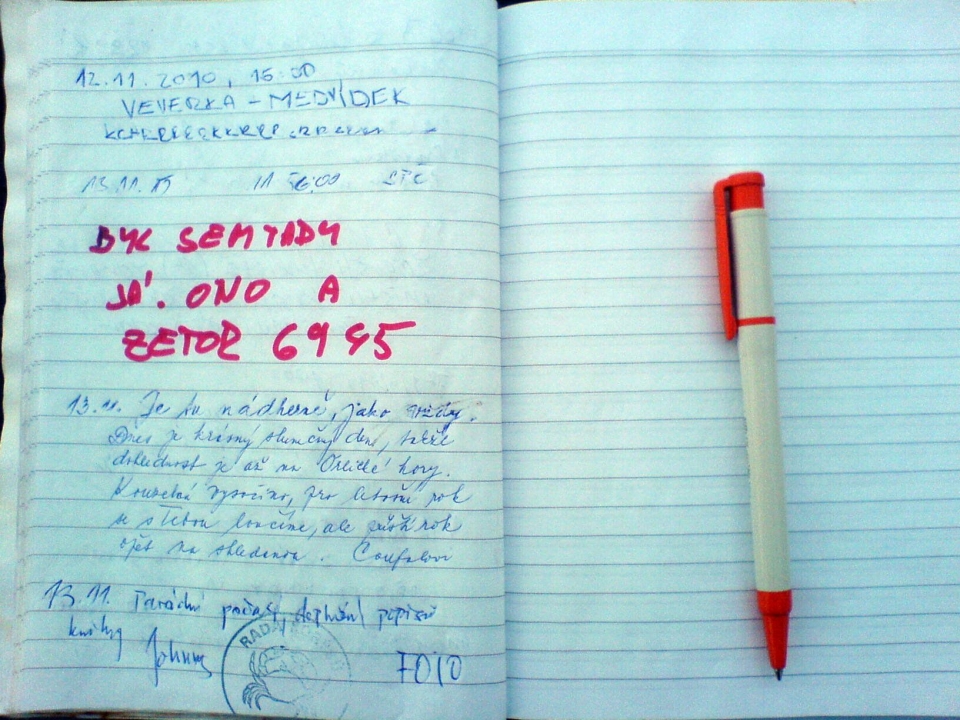 12.11.2010, 15:00
VEVERKA - MEDVÍDEK
13.11.
BYL SEM TADY
JÁ. ONO A
ZETOR 6945
13.11. Je tu nádherně, jako vždy.
Dnes je krásný slunečný den, takže
dohlednost je až na Orlické hory.
Kouzelná vysočino, pro letošní rok
se s Tebou loučíme, ale příští rok
opět na shledanou. Coufalovi
13.11. Parádní počasí, doplnění popisů
knihy Johnny
FOTO
RADA